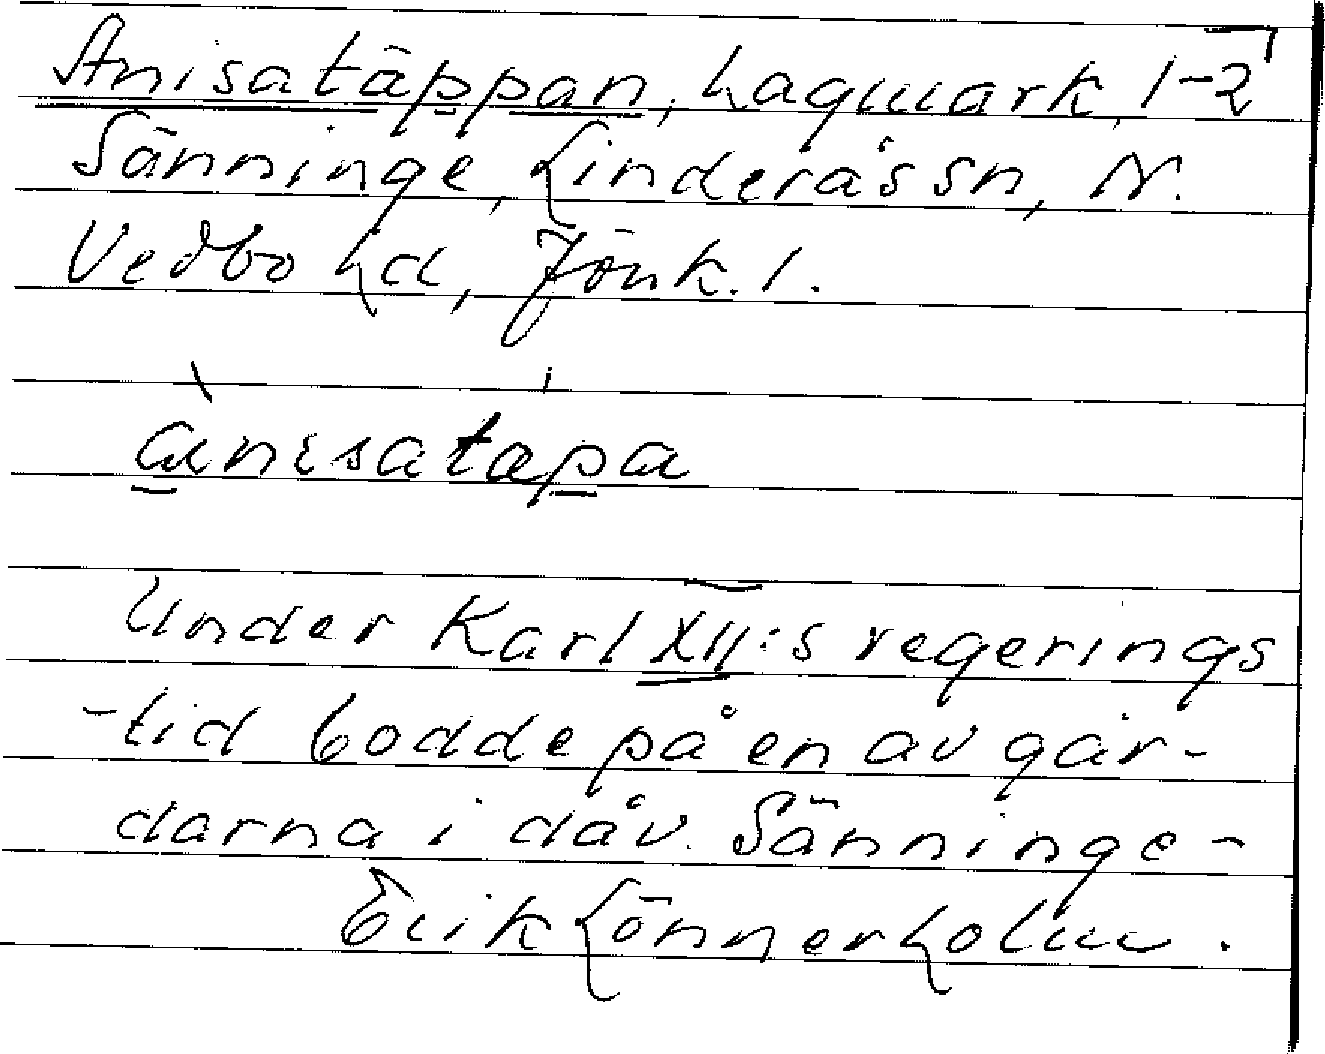 Anisatäppan, hagmark, 1-2
Sänninge, Linderås sn, N.
Vedbo hd, Jönk. l.
ànisatæpa
Under Karl XII:s regerings
-tid bodde på en av går-
darna i dåv. Sänninge-
Erik Lönnerholm.